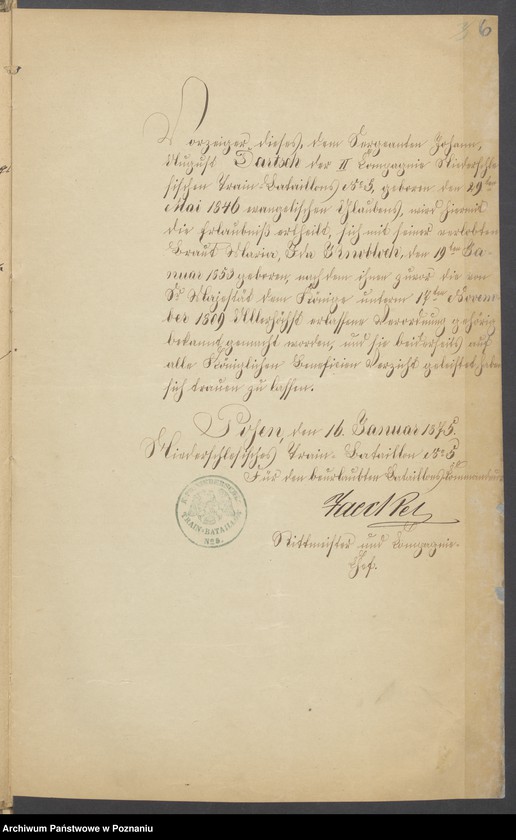 6
Vorzeiger dieses, dem Sergeanten Johann,
August Bartsch der II Compagnie Niederschle
sischen Train-Bataillons No 5, geboren den 29ten
Mai 1846 evangelischen Glaubens, wird hiermit
die Erlaubniß ertheilt, sich mit seiner verlobten
Braut Maria, Ida Knobloch, den 19ten Ja-
nuar 1853 geboren, nachdem ihnen zuvor die von
Sr Majestät dem Könige unterm 14ten Novem-
ber 1809 Allerhöchst erlassene Verordnung gehörig
bekannt gemacht worden, und sie beiderseits auf
alle Königlichen Beneficien Verzicht geleistet haben
sich trauen zu lassen.
Posen, den 16. Januar 1875.
Niederschlesisches Train-Bataillon No 5.
Für den beurlaubten Bataillons Commandeur
Rittmeister und Compagnie-
Chef.
TRAIN-BATAILL.
No 5.
Archiwum Państwowe w Poznaniu